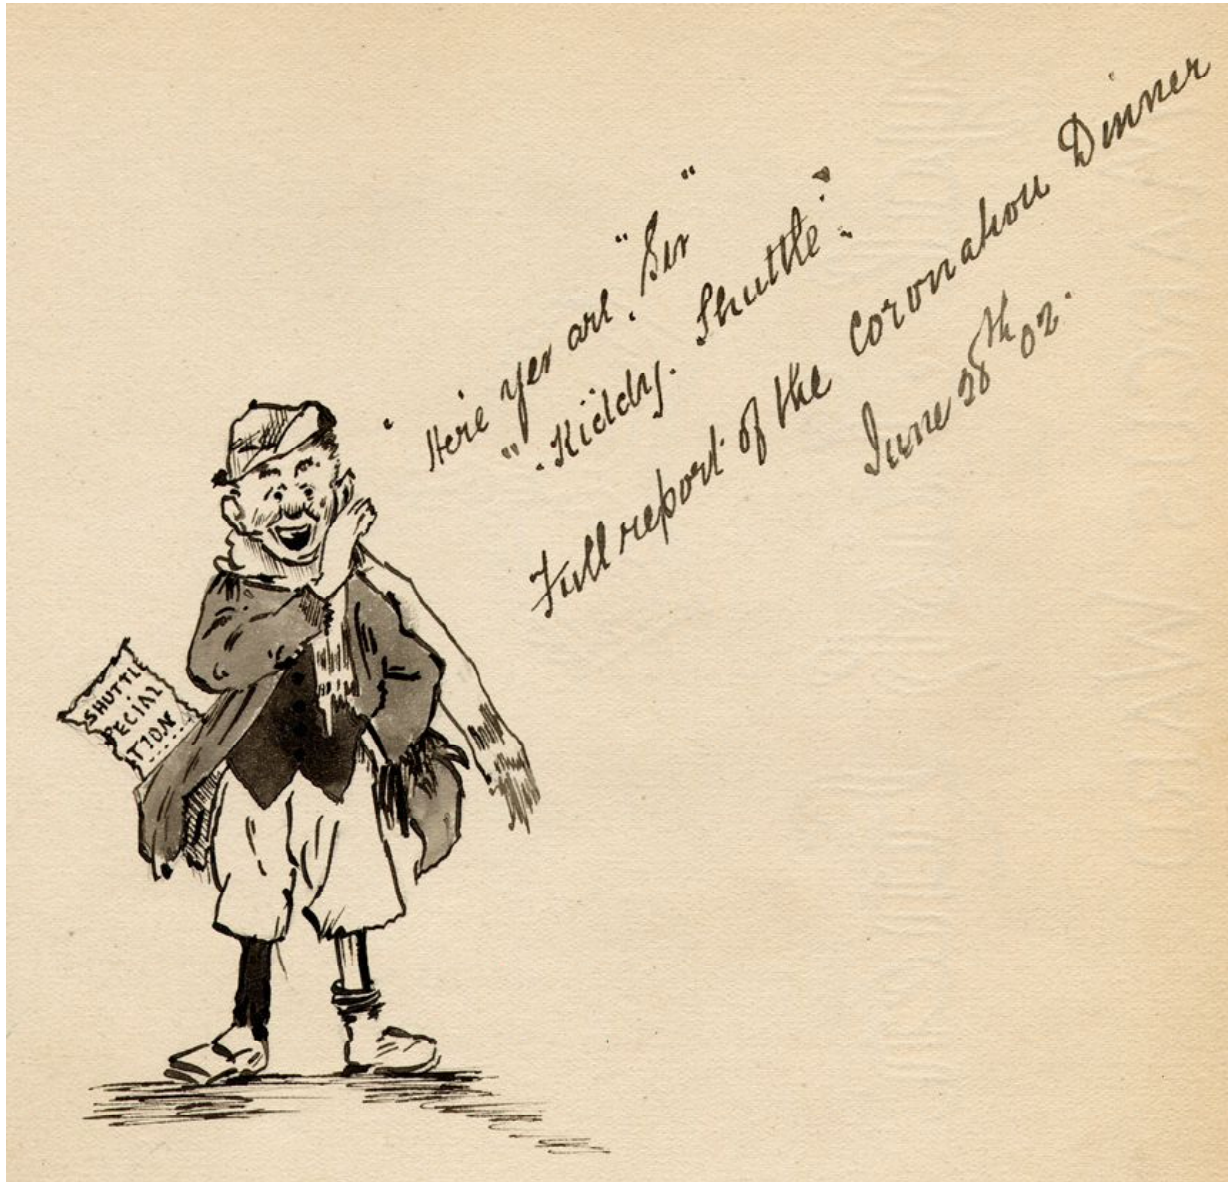 "Here yer are." "Sir"
"Kiddy. Shuttle".
Full report of the Coronation Dinner
June 28th 02.
SHUTTLE
PECIAL
TION